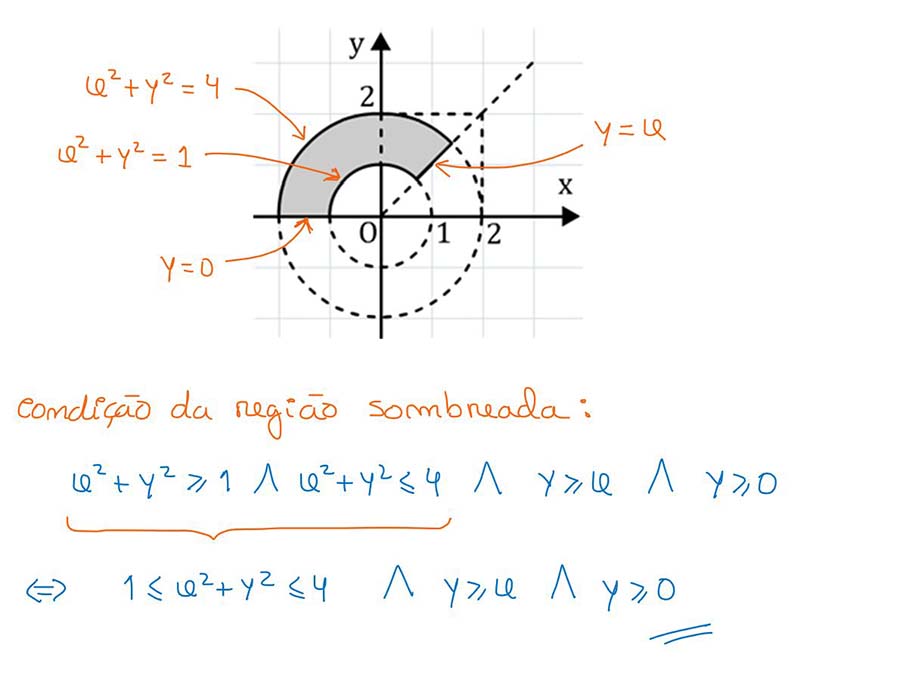 y
x² + y² = 4
2
x² + y² = 1
y = x
x
O 1 2
y = 0
condição da região sombreada:
x² + y² ⩾ 1 ∧ x² + y² ⩽ 4 ∧ y ⩾ x ∧ y ⩾ 0
⇔ 1 ⩽ x² + y² ⩽ 4 ∧ y ⩾ x ∧ y ⩾ 0